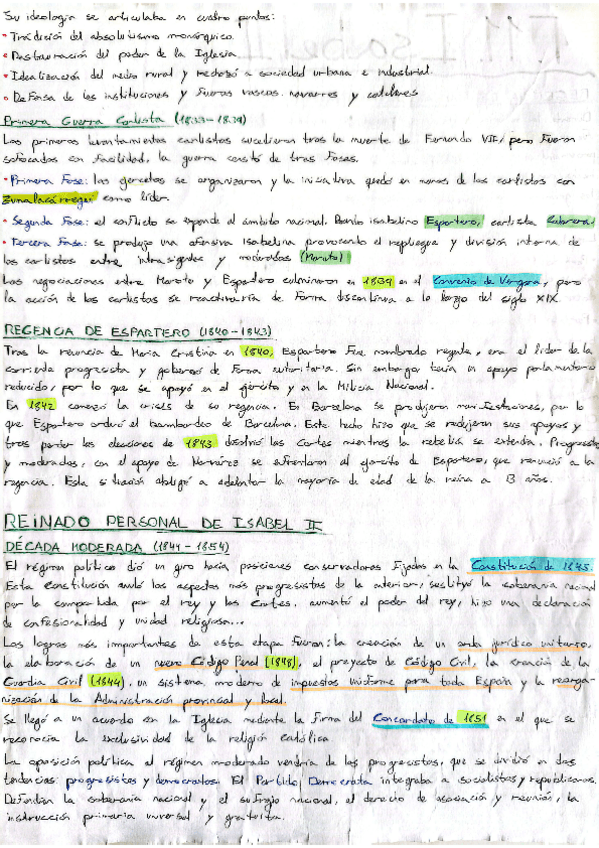 Su ideología se articulaba en cuatro puntos:
• Tradición del absolutismo monárquico
• Restauración del poder de la Iglesia
• Idealización del medio rural y rechazo a sociedad urbana e industrial.
• Defensa de las instituciones y fueros vascos, navarros y catalanes
Primera Guerra Carlista (1833-1839)
Los primeros levantamientos carlistas sucedieron tras la muerte de Fernando VII, pero fueron
sofocados con facilidad, la guerra constó de tres fases.
• Primera Fase: las se organizaron y la iniciativa quedó en manos de los carlistas con
Zumalacárregui como líder.
• Segunda Fase: el conflicto se expande al ámbito nacional. Bando isabelino Espartero, carlista Cabrera.
• Tercera Fase: se produjo una ofensiva Isabelina provocando el repliegue y división interna de
los carlistas entre intransigentes y moderados (Maroto)
Las negociaciones entre Maroto y Espartero culminaron en 1839 en el Convenio de Vergara, pero
la acción de los carlistas se reactivaría de forma discontinua a lo largo del siglo XIX.
REGENCIA DE ESPARTERO (1840-1843)
Tras la renuncia de María Cristina en 1840, Espartero fue nombrado regente, era el líder de la
corriente progresista y gobernó de forma autoritaria. Sin embargo tenía un apoyo parlamentario
reducido, por lo que se apoyó en el ejército y en la Milicia Nacional.
En 1842 comenzó la crisis de su regencia. En Barcelona se produjeron manifestaciones, por lo
que Espartero ordenó el bombardeo de Barcelona. Este hecho hizo que se redujeran sus apoyos y
tras perder las elecciones de 1843 disolvió las Cortes mientras la rebelión se extendía. Progresistas
y moderados, con el apoyo de Narváez se enfrentaron al ejército de Espartero, que renunció a la
regencia. Esta situación obligó a adelantar la mayoría de edad de la reina a 13 años.
REINADO PERSONAL DE ISABEL II
DÉCADA MODERADA (1844-1854)
El régimen político dió un giro hacia posiciones conservadoras fijadas en la Constitución de 1845.
Esta constitución anuló los aspectos más progresistas de la anterior, sustituyó la soberanía nacional
por la compartida por el rey y las Cortes, aumentó el poder del rey, hizo una declaración
de confesionalidad y unidad religiosa...
Los logros más importantes de esta etapa fueron: la creación de un jurídico unitario,
la elaboración de un nuevo Código Penal (1848), el proyecto de Código Civil, la creación de la
Guardia Civil (1844), un sistema moderno de impuestos uniforme para toda España y la reorga-
nización de la Administración provincial y local.
Se llegó a un acuerdo con la Iglesia mediante la firma del Concordato de 1851 en el que se
reconocía la exclusividad de la religión católica
La oposición política al régimen moderado vendría de los progresistas, que se dividió en dos
tendencias: progresistas y demócratas. El Partido Demócrata integraba a socialistas y republicanos.
Defendían la soberanía nacional y el sufragio nacional, el derecho de asociación y reunión, la
instrucción primaria universal y gratuita.